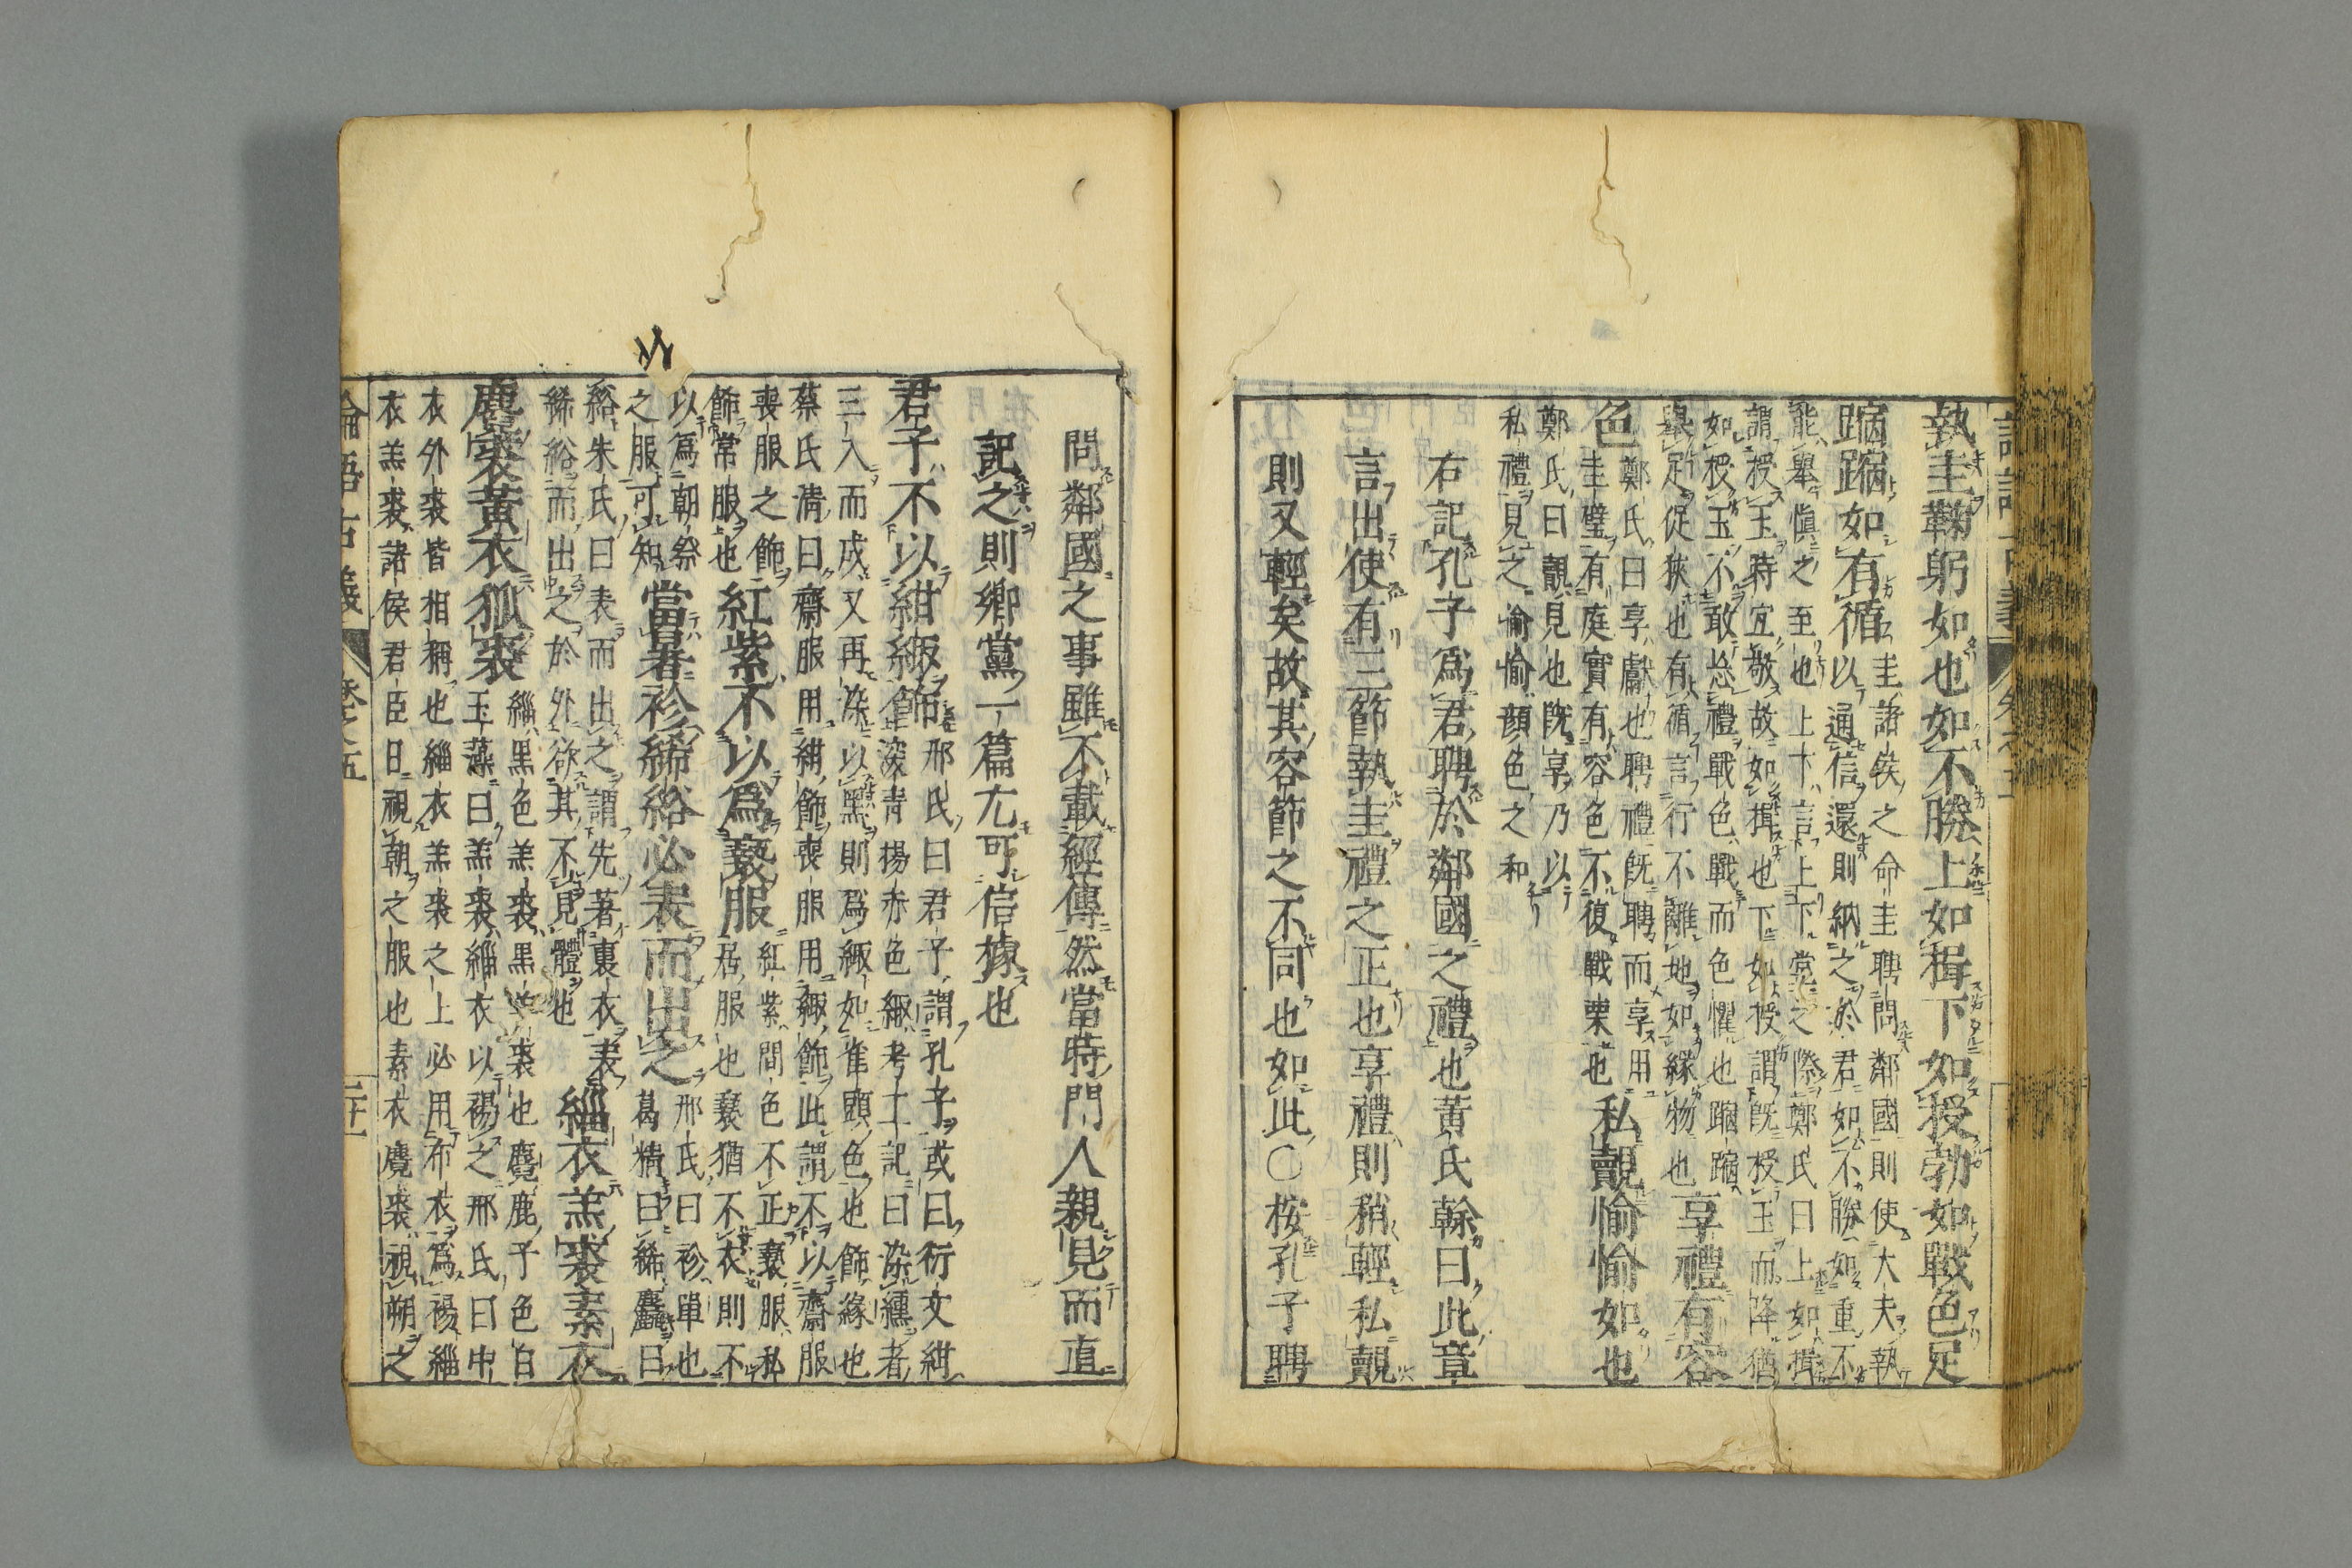 執圭鞠躬如也如不勝上如揖下如授勃如戰色足
蹜蹜如有循圭諸侯之命圭聘問鄰國則使大夫執
以通信還則納之於君如不勝如重不
能舉愼之至也上下言上下堂之際鄭氏曰上如揖
謂授玉時宜敬故如揖也下如授謂既授玉而降猶
如授玉不敢忘禮戰色戰而色懼也蹜蹜
舉足促狹也有循言行不離地如緣物也享禮有容
色鄭氏曰享獻也聘禮既聘而享用
圭璧有庭實有容色不復戰栗也私覿愉愉如也
鄭氏曰覿見也既享乃以
私禮見之愉愉顔色之和
右記孔子爲君聘於鄰國之禮也黃氏榦曰此章
言出使有三節執圭禮之正也享禮則稍輕私覿
則又輕矣故其容節之不同也如此○桉孔子聘
問鄰國之事雖不載經傳然當時門人親見而直
記之則鄉黨一篇尤可信據也
君子不以紺緅飾邢氏曰君子謂孔子或曰衍文紺
深青揚赤色緅考工記曰染纁者
三入而成又再染以黑則爲緅如雀頭色也飾緣也
蔡氏淸曰齋服用紺飾喪服用緅飾此謂不以齋服
喪服之飾
飾常服也紅紫不以爲褻服紅紫間色不正褻服私
居服也褻猶不衣則不
以爲朝祭
之服可知當暑袗絺綌必表而出之邢氏曰袗單也
葛精曰絺麤曰
綌朱氏曰表而出之謂先著裏衣表
絺綌而出之於外欲其不見體也緇衣羔裘素衣
麑裘黃衣狐裘緇黑色羔裘黑羊裘也麑鹿子色白
玉藻曰羔裘緇衣以裼之邢氏曰中
衣外裘皆相稱也緇衣羔裘之上必用布衣爲裼緇
衣羔裘諸侯君臣日視朝之服也素衣麑裘視朔之
論語古義 卷之五